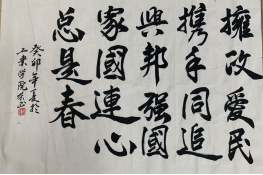 擁政愛民
携手同追
興邦强國
家國連心
总是春
癸卯年夏於
学院